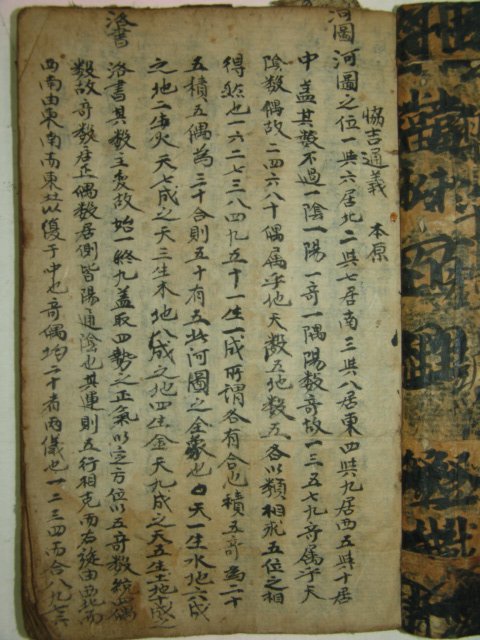 協吉通義 本原
河圖 河圖之位一與六居北二與七居南三與八居東四與九居西五與十居
中盖其數不過一陰一陽一奇一隅陽數奇故一三五七九奇属乎天
陰数偶故二四六八十偶属乎地天数五地数五各以類相 五位之相
得然也一六二七三八四九五十一生一成所謂各有合也積五奇為二十
五積五偶為三十合則五十有五此河圖之全 也 天一生水地六成
之地二生火天七成之天三生木地八成之地四生金天九成之天五生土地 成之
洛書 洛書其數主变故始一終九盖取四勢之正氣以定方位以五奇数統四偶
数故奇数居正偶数居側皆陽通陰也其運則五行相克而右旋由西北而
西南由東南而東北以復于中也奇偶均二十者兩儀也一二三四而合八九七六